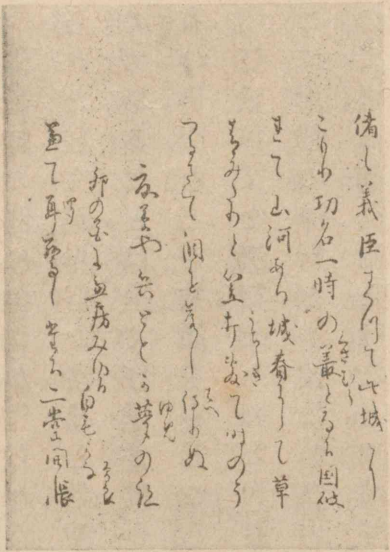 偖も義臣すつて此城にこ
こもり功名一時の叢となる国破
れて山河あり城春にして草
青みたりと笠打敷て時のう
つるまて泪を落し侍りぬ
夏草や兵ともか夢の跡
卯の花に兼房みゆる白毛かな 曽良
兼て耳驚したる二堂開帳